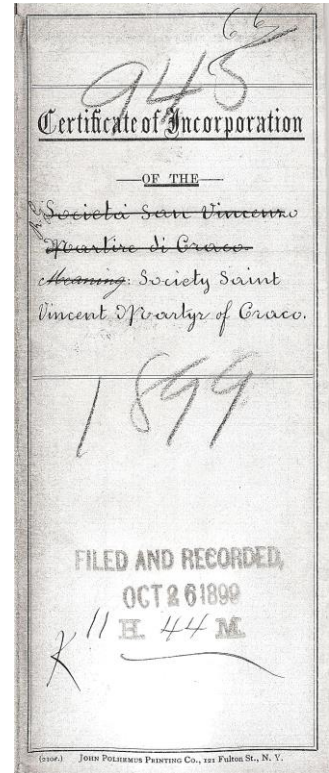 66
945
Certificate of Incorporation
OF THE
Società San Vincenzo
Martire di Craco.
Meaning: Society Saint
Vincent Martyr of Craco.
1899
FILED AND RECORDED,
OCT 26 1899
11 H. 44 M.
K
JOHN POLHEMUS PRINTING CO., 121 Fulton St., N. Y.